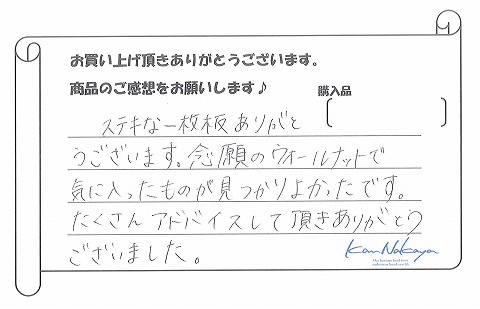 お買い上げ頂きありがとうございます。
商品のご感想をお願いします♪
購入品
ステキな一枚板ありがと
うございます。念願のウォールナットで
気に入ったものが見つかりよかったです。
たくさんアドバイスして頂きありがとう
ございました。
Kan Nakaya